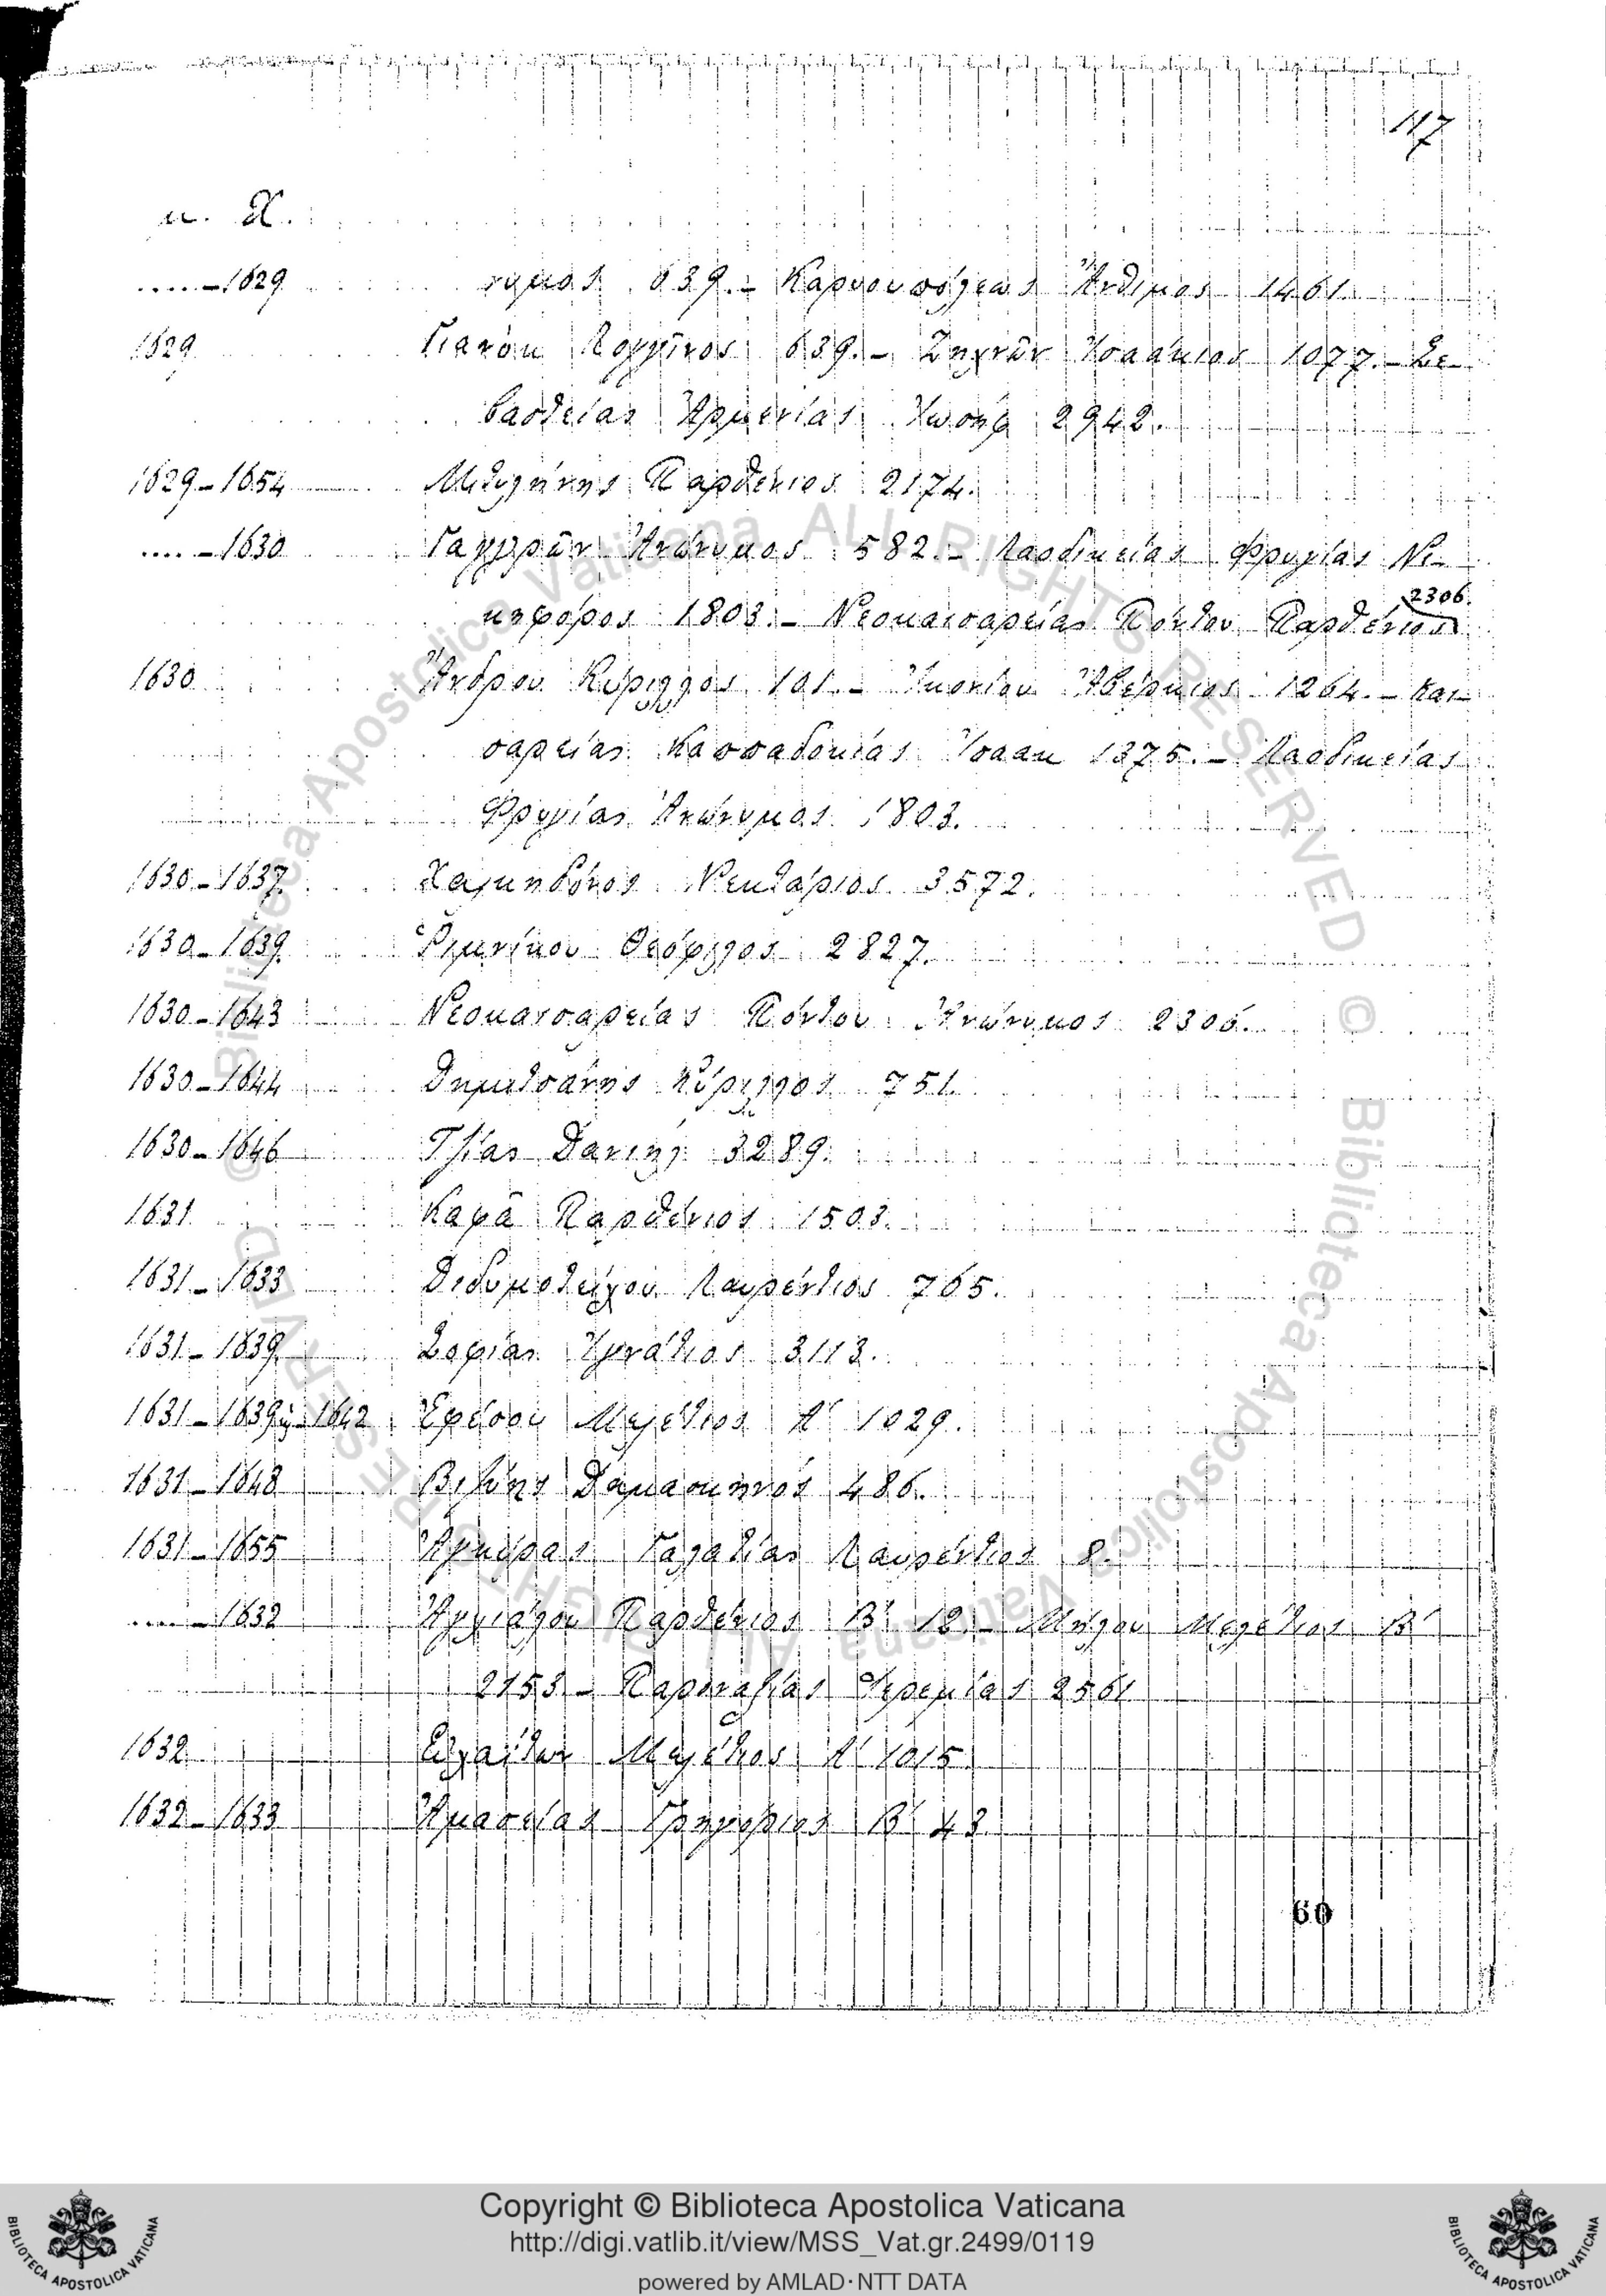 117
μ. Χ.
.....-1629 νυμος 639.- Καρυουπόλεως Ἄνθιμος 1461.
1629 Γιανόυ Λογγῖνος 639.- Ζηχνῶν Ἰσαάκιος 1077.- Σε-
βαστείας Ἀρμενίας Ἰωσὴφ 2942.
1629-1654 Μιτυλήνης Παρθένιος 2174.
....-1630 Γαγγρῶν Ἀνώνυμος 582.- Λαοδικείας Φρυγίας Νι-
κηφόρος 1803.- Νεοκαισαρείας Πόντου Παρθένιος 2306.
1630 Ἄνδρου Κύριλλος 101.- Ἰκονίου Ἀβέρκιος 1264.- Και-
σαρείας Καππαδοκίας Ἰσαὰκ 1375.- Λαοδικείας
Φρυγίας Ἀνώνυμος 1803.
1630-1637 Χαλκηδόνος Νεκτάριος 3572.
1630-1639 Ῥιμνίκου Θεόφιλος 2827.
1630-1643 Νεοκαισαρείας Πόντου Ἀνώνυμος 2306.
1630-1644 Δημιτσάνης Κύριλλος 751.
1630-1646 Τζίας Δανιὴλ 3289.
1631 Καφᾶ Παρθένιος 1503.
1631-1633 Διδυμοτείχου Λαυρέντιος 765.
1631-1639 Σοφίας Ἰγνάτιος 3113.
1631-1639 ἢ 1642 Ἐφέσου Μελέτιος Α΄ 1029.
1631-1648 Βιζύης Δαμασκηνὸς 486.
1631-1655 Ἀγκύρας Γαλατίας Λαυρέντιος 8.
.....-1632 Ἀγχιάλου Παρθένιος Β΄ 12.- Μήλου Μελέτιος Β΄
2153.- Παροναξίας Ἱερεμίας 2561
1632 Εὐχαΐτων Μελέτιος Α΄ 1015
1632-1633 Ἀμασείας Γρηγόριος Β΄ 43.
60
Copyright © Biblioteca Apostolica Vaticana
http://digi.vatlib.it/view/MSS_Vat.gr.2499/0119
powered by AMLAD·NTT DATA
BIBLIOTECA APOSTOLICA VATICANA
BIBLIOTECA APOSTOLICA VATICANA
© Biblioteca Apostolica Vaticana ALL RIGHTS RESERVED
© Biblioteca Apostolica Vaticana ALL RIGHTS RESERVED